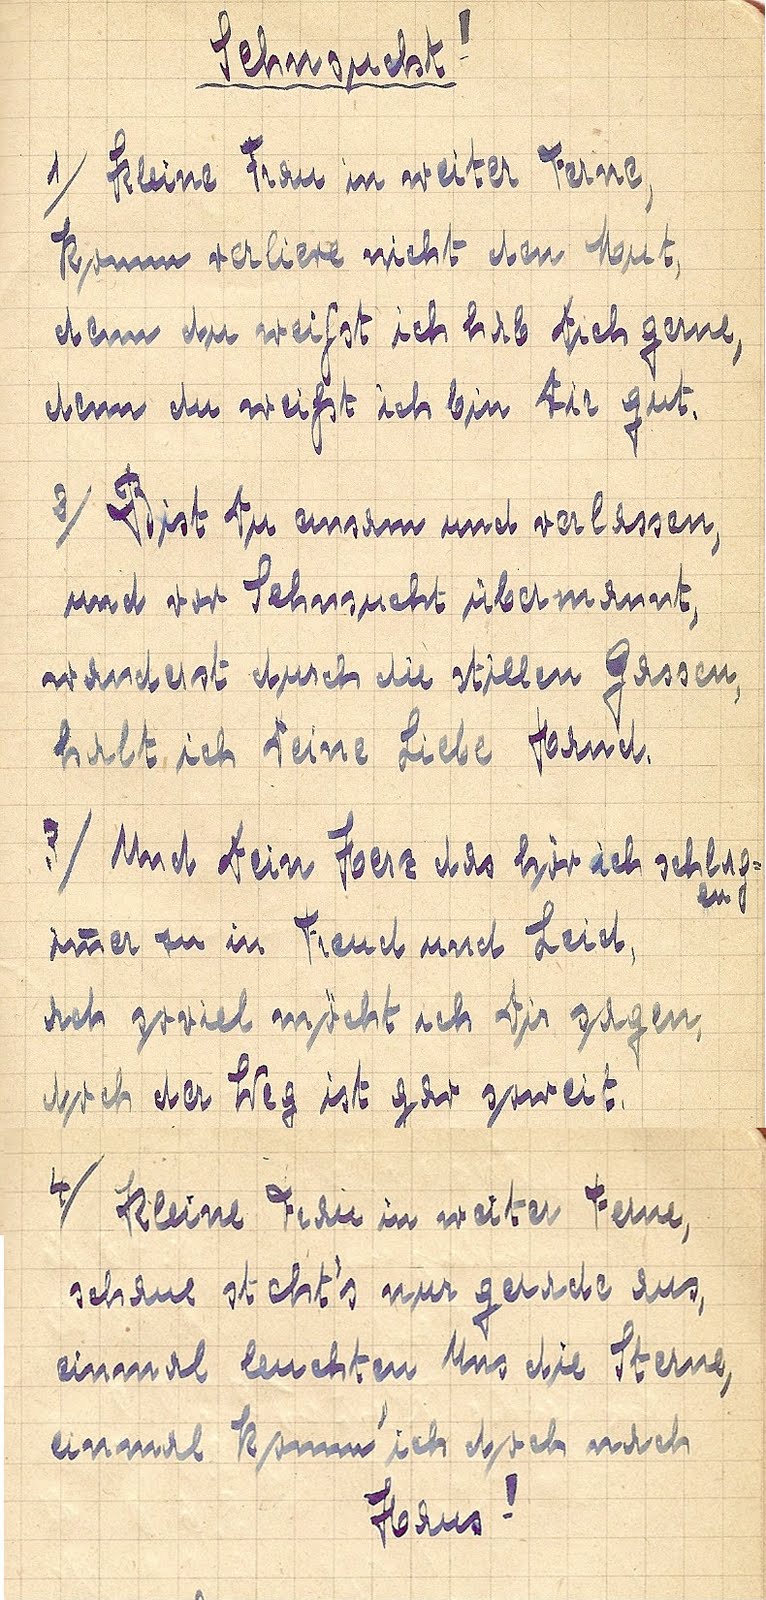 Sehnsucht!
1/ Kleine Frau in weiter Ferne,
Komm verliere nicht den Mut,
denn du weißt ich hab Dich gerne,
denn du weißt ich bin Dir gut.
2/ Bist Du einsam und verlassen,
und vor Sehnsucht übermannt,
wanderst durch die stillen Gassen,
halt ich Deine Liebe Hand.
3/ Und Dein Herz das hör ich schlag=
en
im̄er zu in Freud und Leid,
ach soviel möcht ich Dir sagen,
doch der Weg ist gar soweit.
4/ Kleine Frau in weiter Ferne,
schaue steht's nur gerade aus,
einmal leuchten Uns die Sterne,
einmal Komm' ich doch nach
Haus!